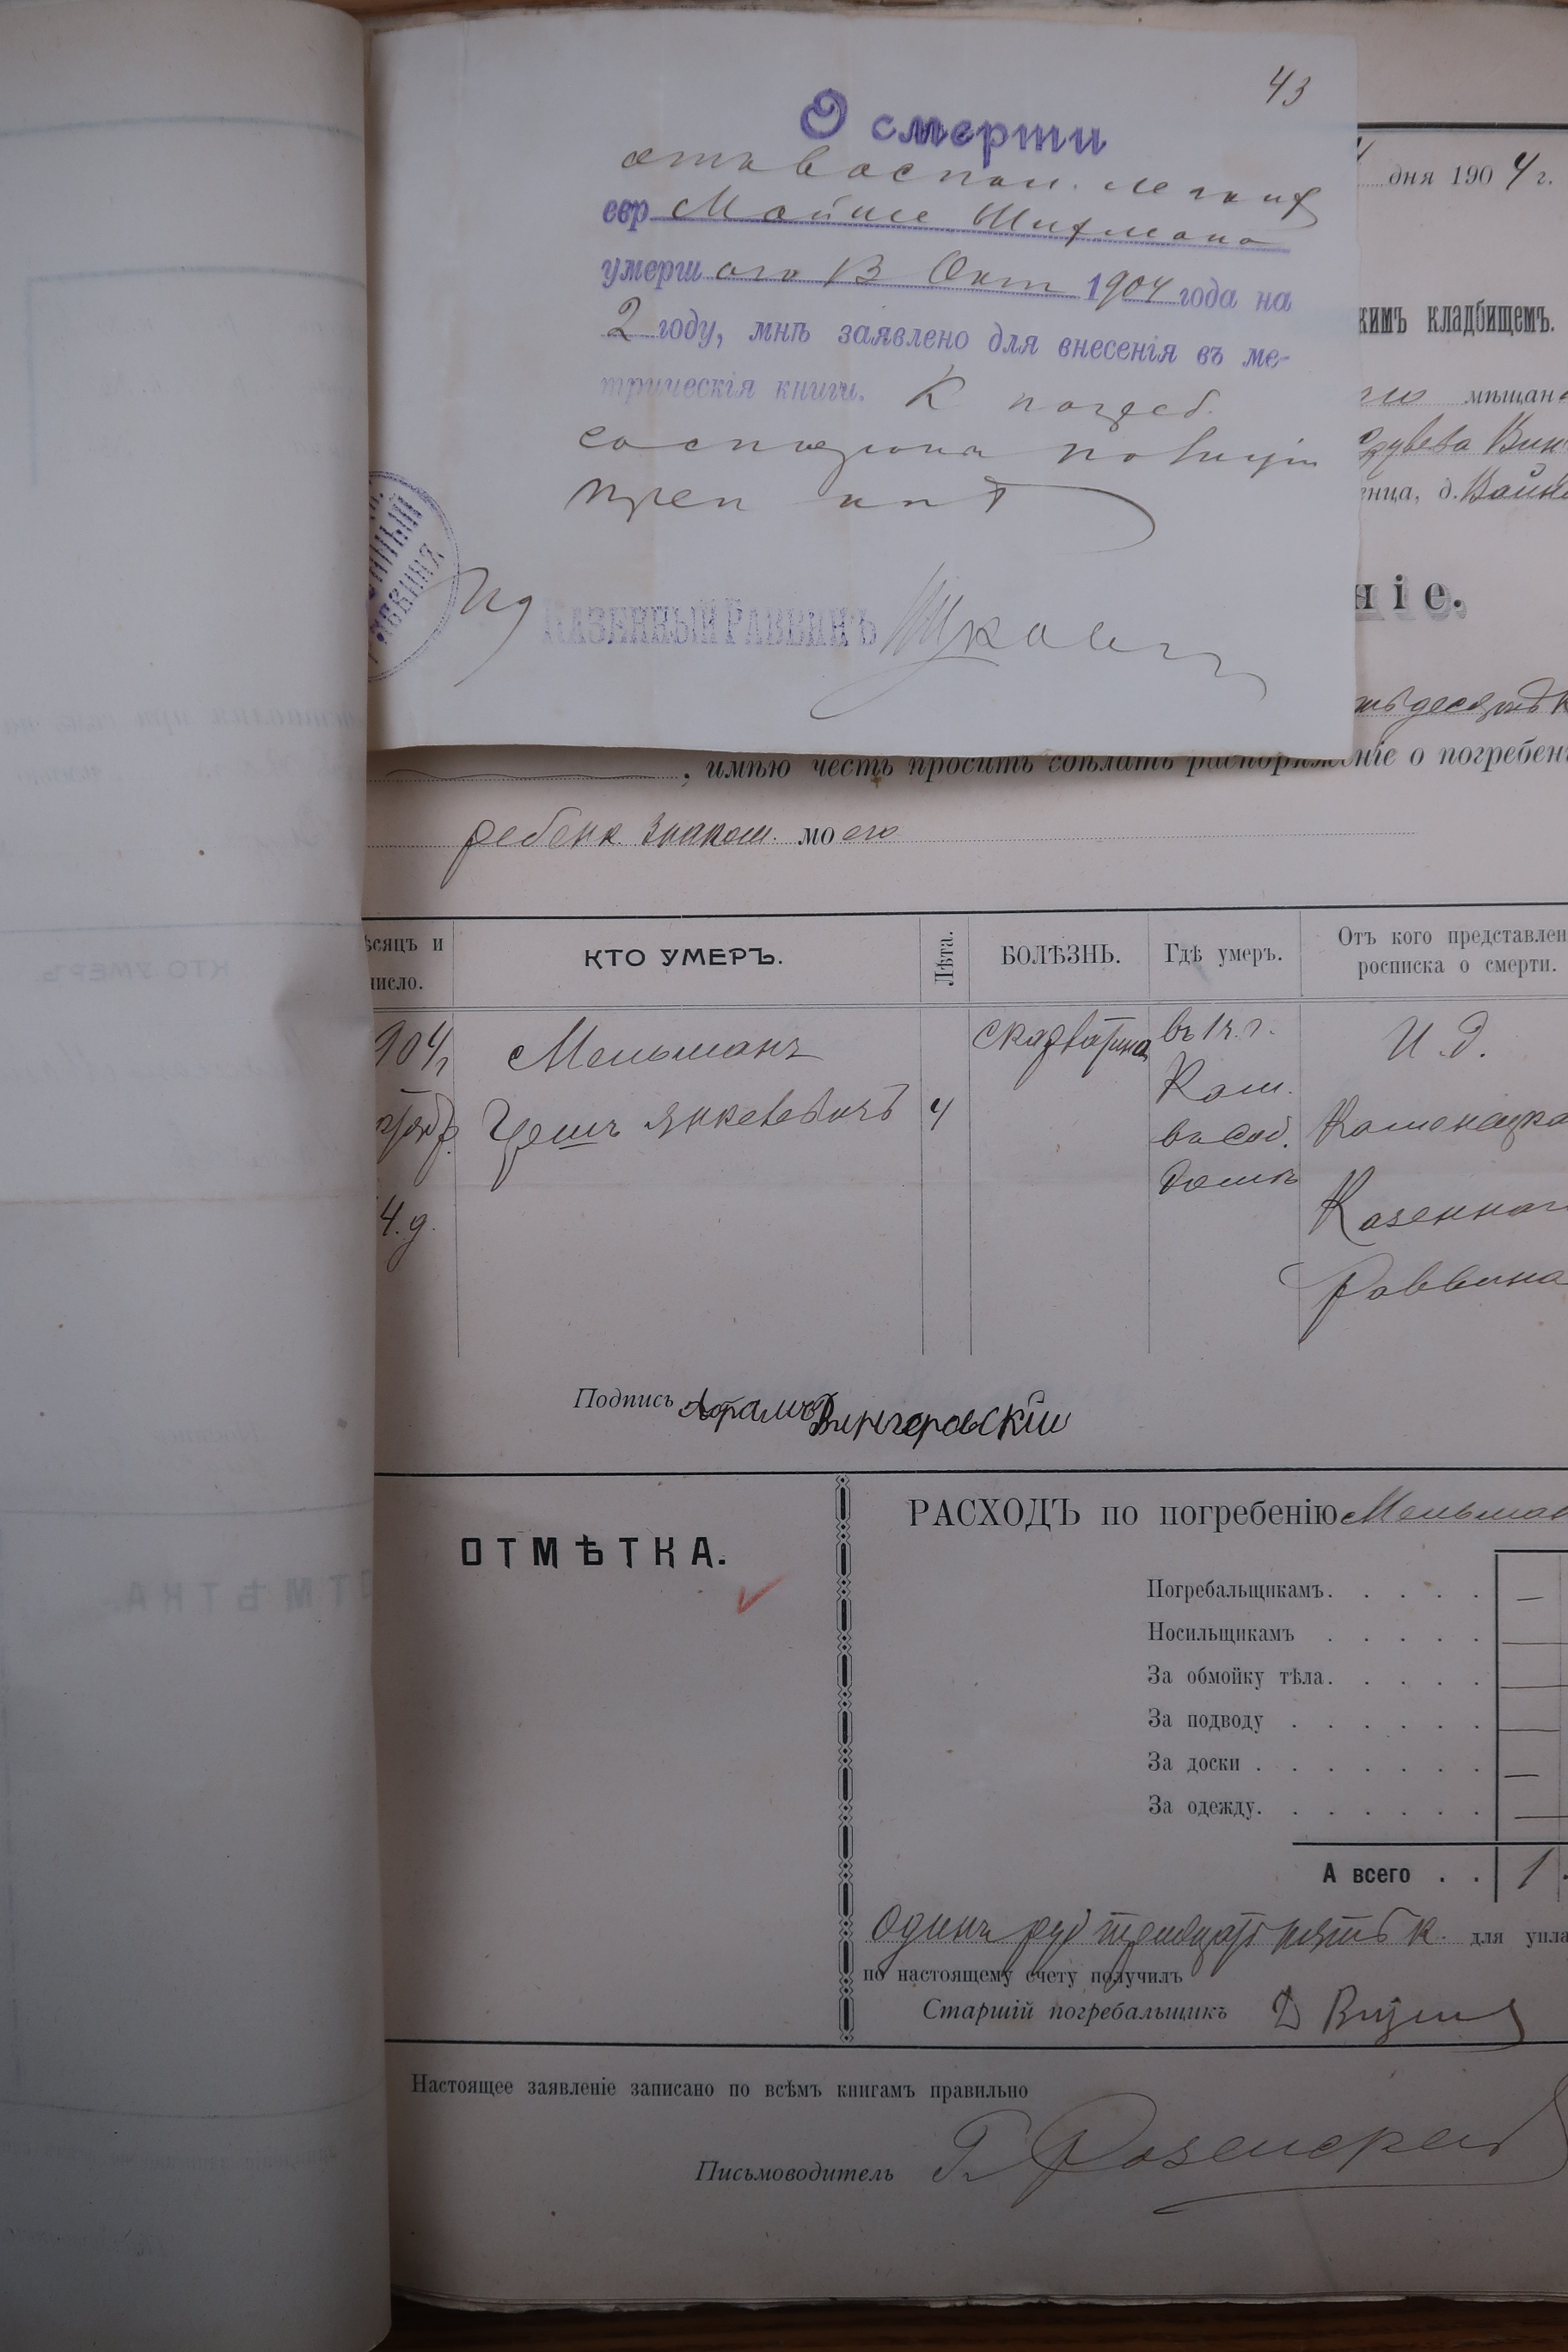 43
О смерти
отъ воспал. легкихъ
евр Мойше Шифмана
умершаго 13 Окт 1904 года на
2 году, мнѣ заявлено для внесенія въ ме-
трическія книги. К погреб.
препят
КАЗЕННЫЙ РАВВИНЪ
Ид КАЗЕННЫЙ РАВВИНЪ
дня 1904 г.
кимъ кладбищемъ.
мѣщан
енца, д.
ніе.
, имѣю честь просить сдѣлать распоряженіе о погребен
ребенк. знаком. моего
ѣсяцъ и число. КТО УМЕРЪ. Лѣта. БОЛѢЗНЬ. Гдѣ умеръ. Отъ кого представлен росписка о смерти.
904 г Мельманъ скарлатина въ 1 ч. г. И. д.
Кам.
Янкелевичъ 4 въ соб. Каменецка
4. д. домѣ Казеннаг
Раввина
Подпись Абрамъ
ОТМѢТКА.
РАСХОДЪ по погребенію Мельман
Погребальщикамъ. —
Носильщикамъ —
За обмойку тѣла. —
За подводу —
За доски —
За одежду. —
А всего 1
Одинъ руб тридцать пять к. для упла
по настоящему счету получилъ
Старшій погребальщикъ
Настоящее заявленіе записано по всѣмъ книгамъ правильно
Письмоводитель